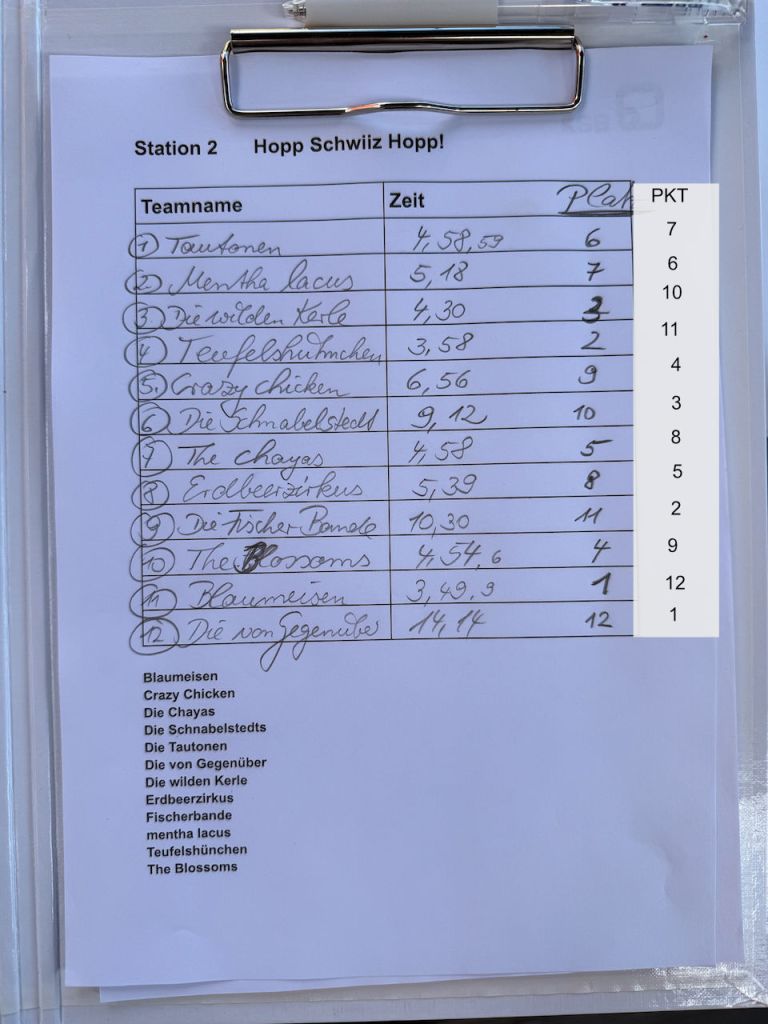 Station 2 Hopp Schwiiz Hopp!
Teamname Zeit Platz PKT
1 Tautonen 4,58,59 6 7
2. Mentha lacus 5,18 7 6
3 Die wilden Kerle 4,30 3 10
4 Teufelshühnchen 3,58 2 11
5. Crazy chicken 6,56 9 4
6 Die Schnabelstedt 9,12 10 3
7 The chayas 4,58 5 8
8 Erdbeerzirkus 5,39 8 5
9 Die Fischer Bande 10,30 11 2
10 The Blossoms 4,54,6 4 9
11 Blaumeisen 3,49,9 1 12
12 Die von Gegenüber 14,14 12 1
Blaumeisen
Crazy Chicken
Die Chayas
Die Schnabelstedts
Die Tautonen
Die von Gegenüber
Die wilden Kerle
Erdbeerzirkus
Fischerbande
mentha lacus
Teufelshünchen
The Blossoms